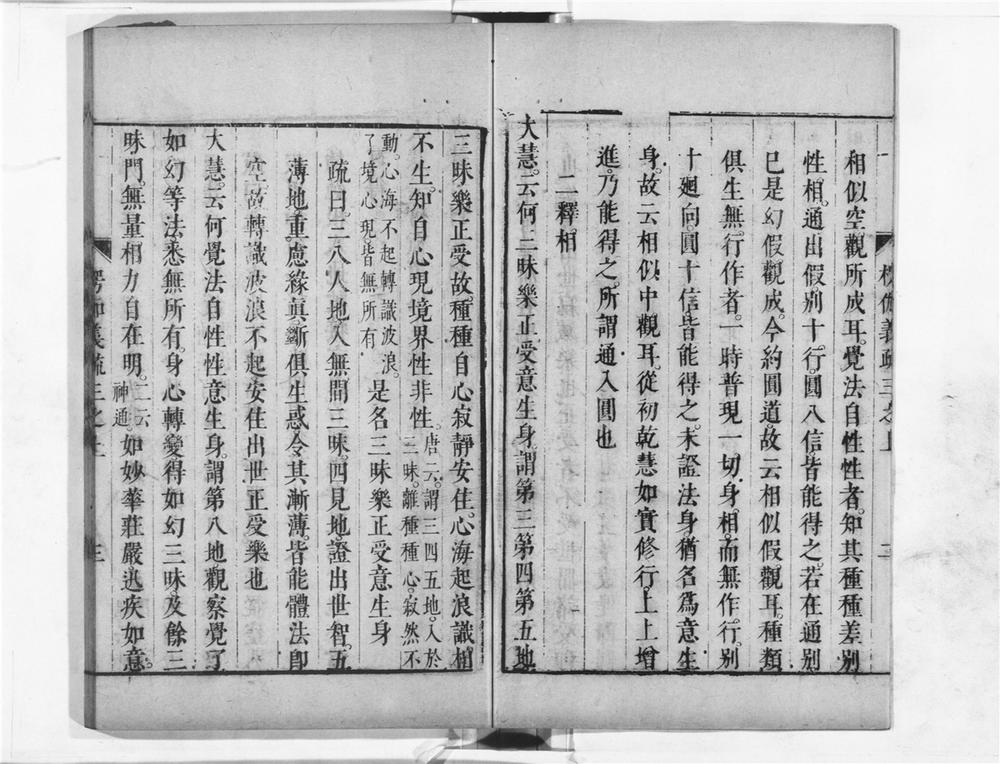 相似空觀所成耳。覺法自性性者。知其種種差別
性相。通出假別十行。圓八信皆能得之。若在通別
巳是幻假觀成。今約圓道故云相似假觀耳。種類
俱生無行作者。一時普現一切身相。而無作行。別
十廻向。圓十信皆能得之。未證法身猶名爲意生
身。故云相似中觀耳。從初乾慧如實修行上上增
進。乃能得之。所謂通入圓也
二釋相
大慧。云何三昧樂正受意生身。謂第三第四第五地
三昧樂正受故。種種自心寂靜安住。心海起浪識相
不生。知自心現境界性非性。唐云。謂三四五地。入於三昧。離種種心。寂然不
動。心海不起轉識波浪。了境心現皆無所有。是名三昧樂正受意生身
疏曰。三八人地入無間三昧。四見地證出世智。五
薄地重慮緣眞斷俱生惑。令其漸薄。皆能體法即
空。故轉識波浪不起安住出世正受樂也
大慧。云何覺法自性性意生身。謂第八地觀察覺了
如幻等法悉無所有。身心轉變得如幻三昧。及餘三
昧門。無量相力自在明。二云神通。如妙華莊嚴迅疾如意。
楞伽義疏三之上
三